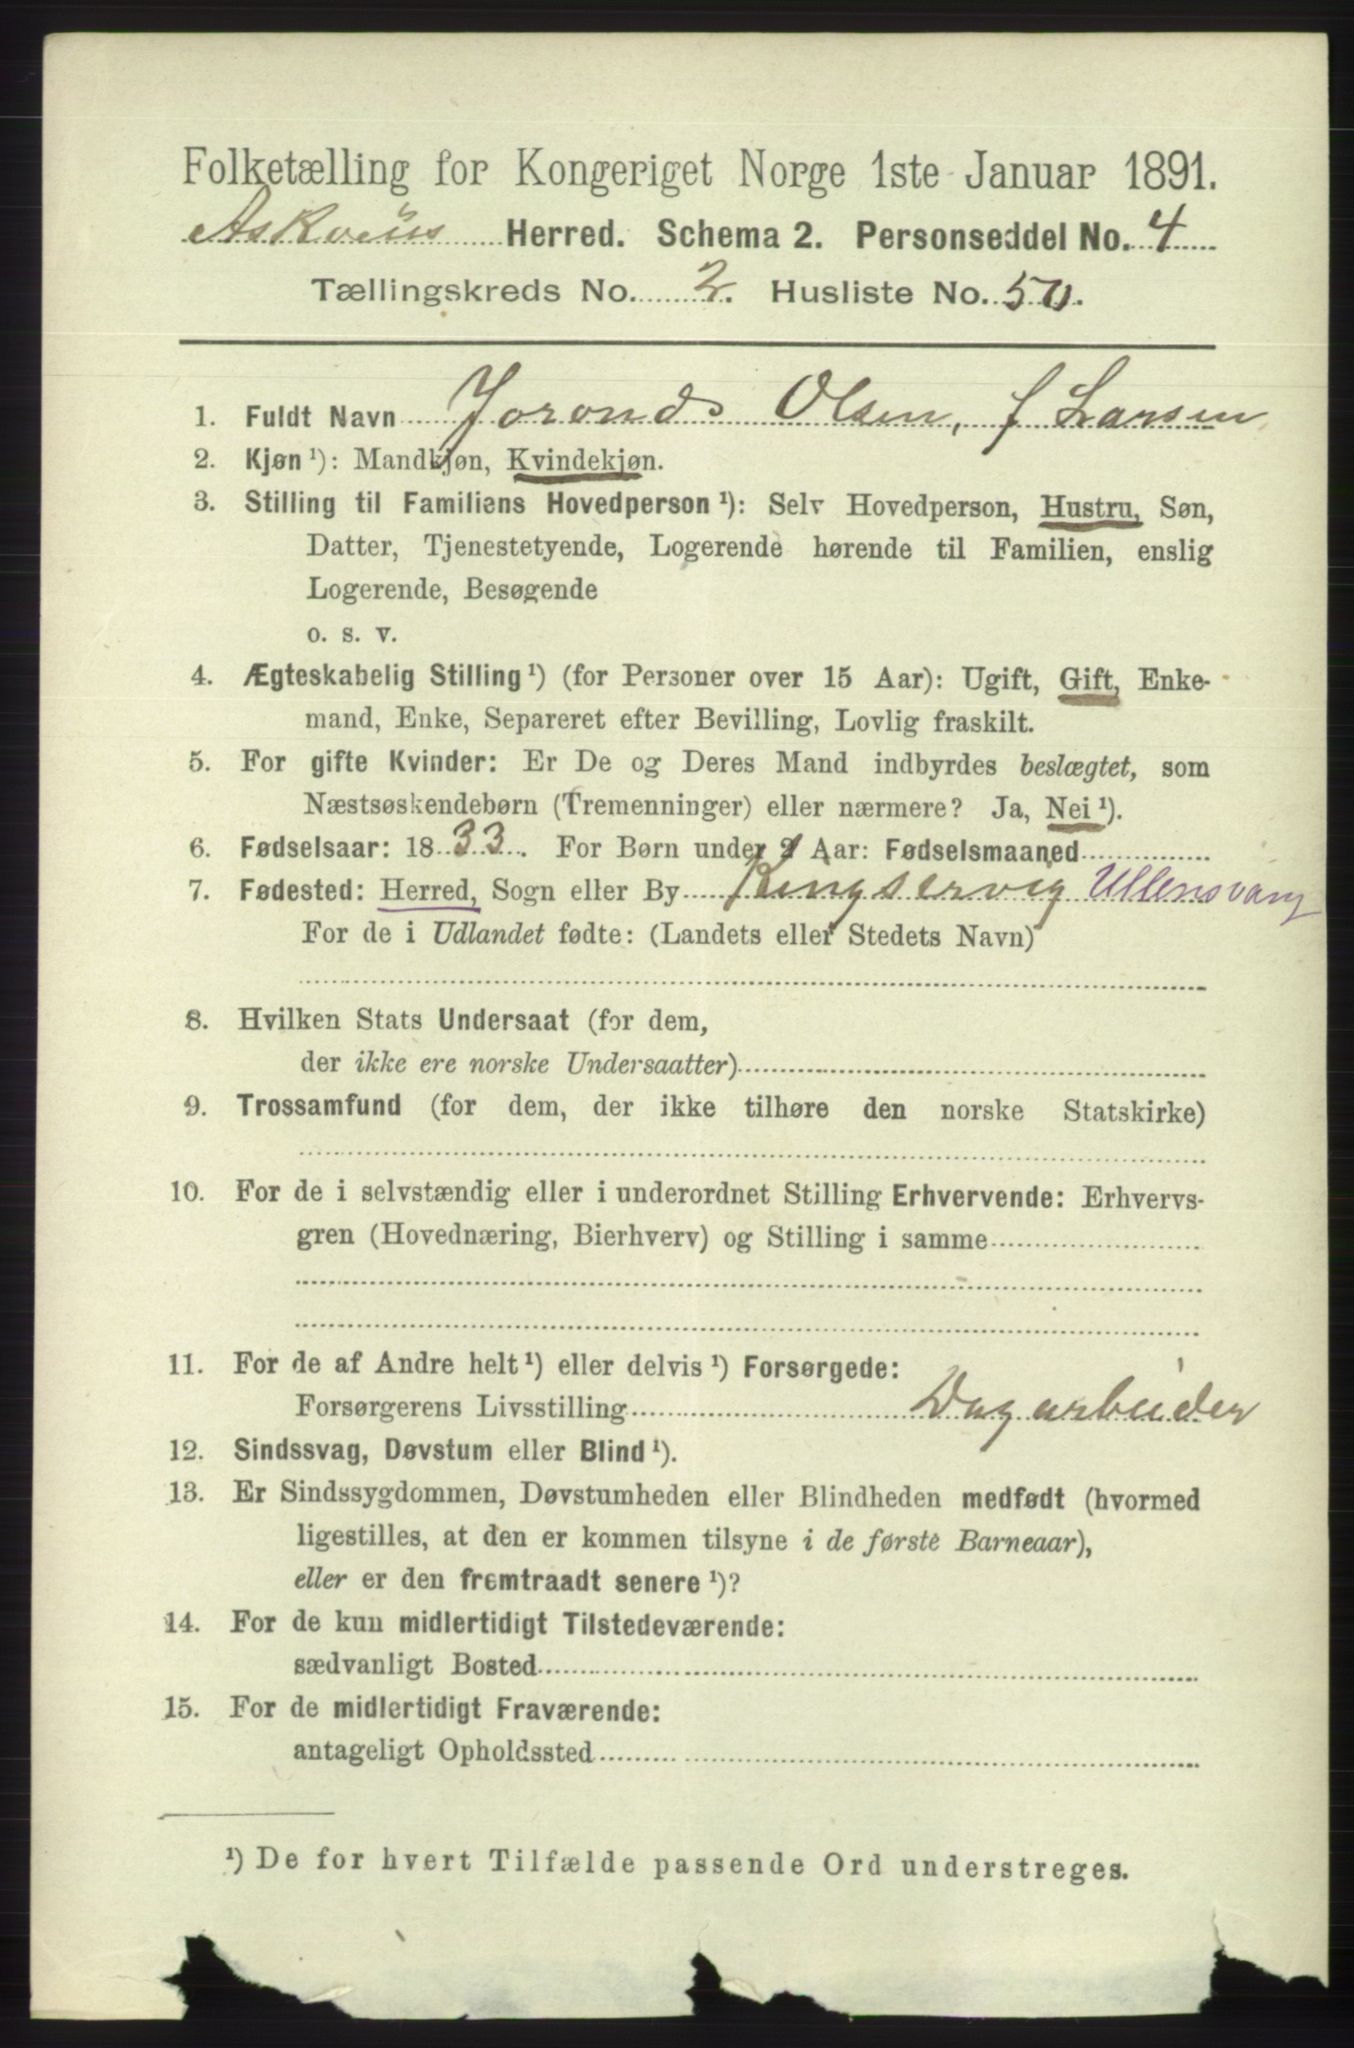 Folketælling for Kongeriget Norge 1ste Januar 1891.
Askvøll Herred. Schema 2. Personseddel No. 4
Tællingskreds No. 2. Husliste No. 50.
1. Fuldt Navn Joronds Olsen, f Larsen
2. Kjøn ¹): Mandkjøn, Kvindekjøn.
3. Stilling til Familiens Hovedperson ¹): Selv Hovedperson, Hustru, Søn,
Datter, Tjenestetyende, Logerende hørende til Familien, enslig
Logerende, Besøgende
o. s. v.
4. Ægteskabelig Stilling ¹) (for Personer over 15 Aar): Ugift, Gift, Enke-
mand, Enke, Separeret efter Bevilling, Lovlig fraskilt.
5. For gifte Kvinder: Er De og Deres Mand indbyrdes beslægtet, som
Næstsøskendebørn (Tremenninger) eller nærmere? Ja, Nei ¹).
6. Fødselsaar: 1833. For Børn under 2 Aar: Fødselsmaaned
7. Fødested: Herred, Sogn eller By Kingservig Ullensvang
For de i Udlandet fødte: (Landets eller Stedets Navn)
8. Hvilken Stats Undersaat (for dem,
der ikke ere norske Undersaatter)
9. Trossamfund (for dem, der ikke tilhøre den norske Statskirke)
10. For de i selvstændig eller i underordnet Stilling Erhvervende: Erhvervs-
gren (Hovednæring, Bierhverv) og Stilling i samme
11. For de af Andre helt ¹) eller delvis ¹) Forsørgede:
Forsørgerens Livsstilling Dagarbeider
12. Sindssvag, Døvstum eller Blind ¹).
13. Er Sindssygdommen, Døvstumheden eller Blindheden medfødt (hvormed
ligestilles, at den er kommen tilsyne i de første Barneaar),
eller er den fremtraadt senere ¹)?
14. For de kun midlertidigt Tilstedeværende:
sædvanligt Bosted
15. For de midlertidigt Fraværende:
antageligt Opholdssted
¹) De for hvert Tilfælde passende Ord understreges.